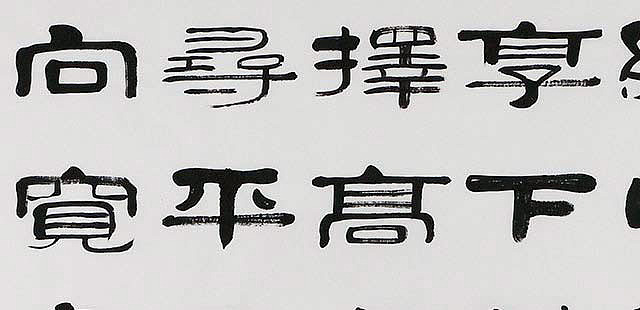 享下
擇高
尋平
向寬